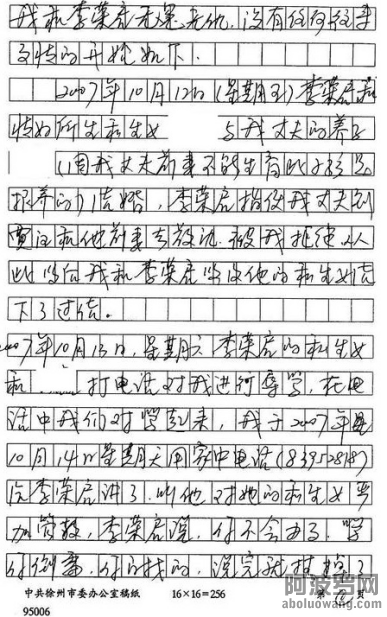 我和李荣启无冤无仇，没有任何往事
交恃的开始如下.
2007年10月12日(星期五)李荣启和
情妇所生私生女 与我丈夫的养子
(因我丈夫前妻不能生育此小孩是
抱养的)结婚，李荣启指使我丈夫到
贾汪和他前妻去敬酒.被我拒绝.从
此以后我和李荣启以及他的私生女结
下了过结。
2007年10月13日,星期六李荣启的私生女
和 打电话对我进行辱骂，在电
话中我们对骂起来，我于2007年
10月14日星期天用家中电话(83952818)
给李荣启讲了.叫他对她的私生女严
加管教，李荣启说，你不会办了.骂
你倒霉.你自找的，说完就挂
中共徐州市委办公室稿纸 16×16=256 第 页
95006
阿波罗网
aboluowang.com